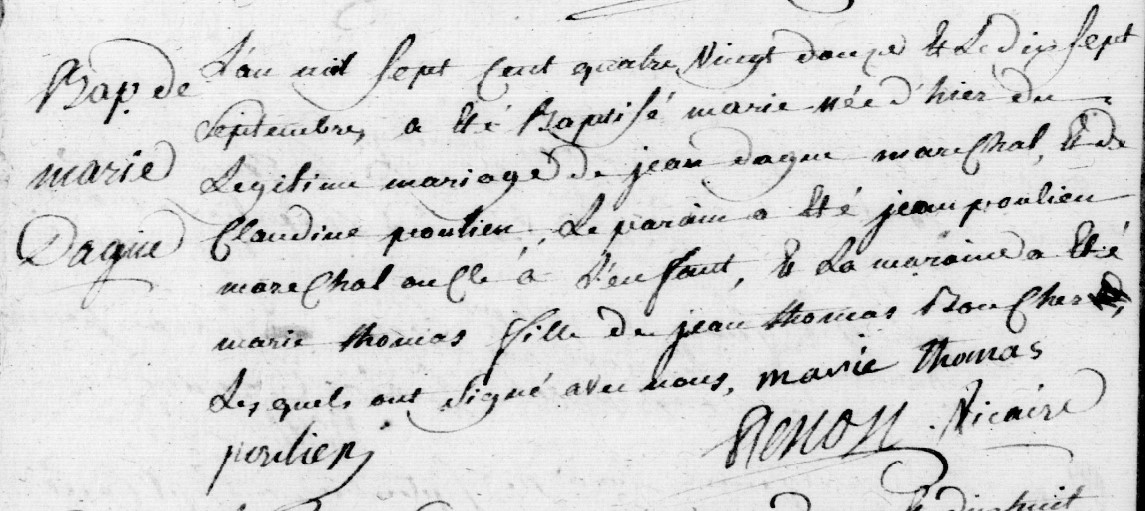 Bap. de
marie
Dague
L'an mil sept cent quatre vingt douze et le dix sept
septembre, a eté Baptisé marie née d'hier du
Legitime mariage de jean dague marechal, et de
Claudine poulien, Le parain a eté jean poulien
marechal oncle à l'enfant, et la maraine a eté
marie thomas fille de jean thomas Boucher,
Lesquels ont signé avec nous, marie thomas
poulien
Vicaire
dixhuit